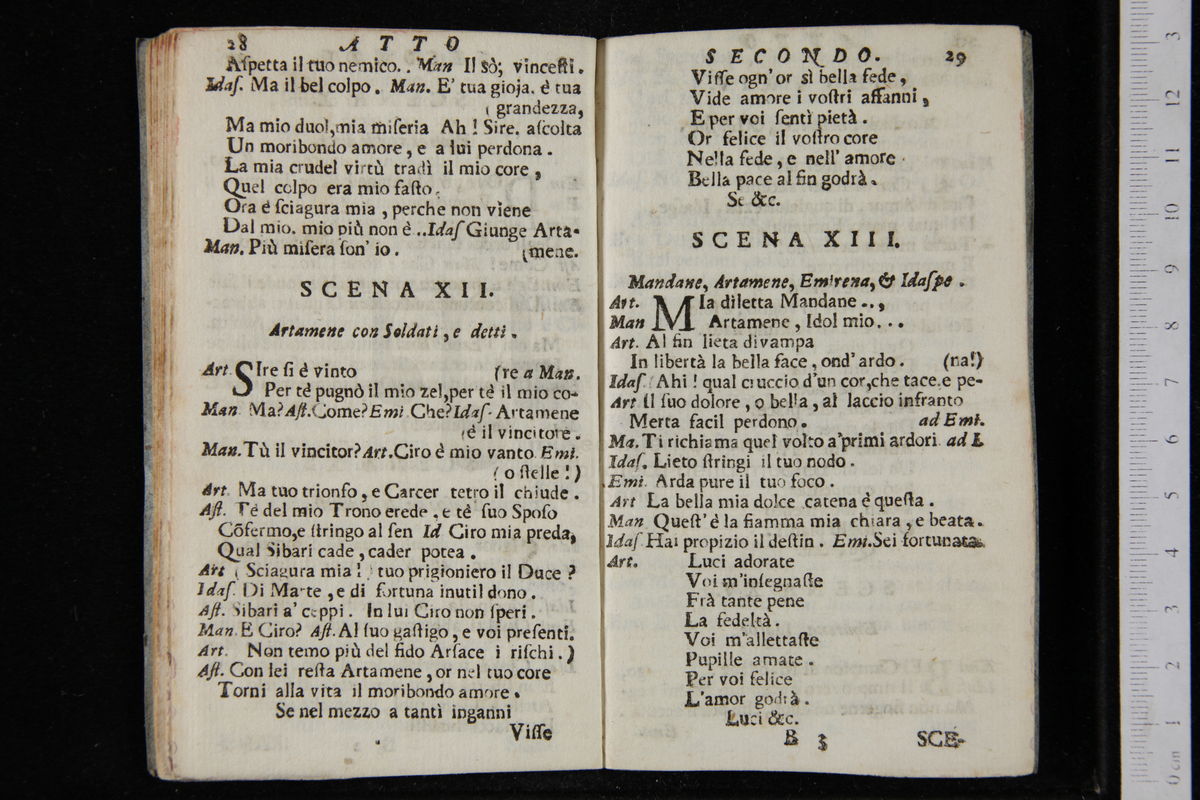 28 ATTO
Aſpetta il tuo nemico.. Man Il sò; vinceſti.
Idaſ. Ma il bel colpo. Man. E' tua gioja. è tua
( grandezza,
Ma mio duol,mia miſeria Ah! Sire, aſcolta
Un moribondo amore, e a lui perdona.
La mia crudel virtù tradì il mio core,
Quel colpo era mio faſto.
Ora è ſciagura mia, perche non viene
Dal mio, mio più non è ..Idaſ Giunge Arta-
Man. Più miſera ſon' io. (mene.
SCENA XII.
Artamene con Soldati, e detti.
Art. SIre ſi è vinto (re a Man.
Per tè pugnò il mio zel,per tè il mio co-
Man. Ma? Aſt.Come? Emi Che? Idaſ. Artamene
(è il vincitore.
Man.Tù il vincitor? Art.Ciro è mio vanto Emi.
( o ſtelle!)
Art. Ma tuo trionfo, e Carcer tetro il chiude.
Aſt. Tè del mio Trono erede, e tè ſuo Spoſo
Cõfermo,e ſtringo al ſen Id Ciro mia preda,
Qual Sibari cade, cader potea.
Art ( Sciagura mia! ) tuo prigioniero il Duce?
Idaſ. Di Marte, e di fortuna inutil dono.
Aſt. Sibari a' ceppi. In lui Ciro non ſperi.
Man. E Ciro? Aſt. Al ſuo gaſtigo, e voi preſenti.
Art. Non temo più del fido Arſace i riſchi.)
Aſt. Con lei reſta Artamene, or nel tuo core
Torni alla vita il moribondo amore.
Se nel mezzo a tanti inganni
Viſſe
SECONDO. 29
Viſſe ogn' or sì bella fede,
Vide amore i voſtri affanni,
E per voi ſentì pietà.
Or felice il voſtro core
Nella fede, e nell' amore
Bella pace al fin godrà.
Se &c.
SCENA XIII.
Mandane, Artamene, Emirena, & Idaſpe.
Art. MIa diletta Mandane ..,
Man Artamene, Idol mio...
Art. Al fin lieta divampa
In libertà la bella face, ond' ardo. (na!)
Idaſ. (Ahi! qual cruccio d'un cor,che tace,e pe-
Art Il ſuo dolore, o bella, al laccio infranto
Merta facil perdono. ad Emi.
Ma. Ti richiama quel volto a'primi ardori. ad I.
Idaſ. Lieto ſtringi il tuo nodo.
Emi. Arda pure il tuo foco.
Art La bella mia dolce catena è queſta.
Man Queſt' è la fiamma mia chiara, e beata.
Idaſ. Hai propizio il deſtin. Emi.Sei fortunata.
Art. Luci adorate
Voi m'inſegnaſte
Frà tante pene
La fedeltà.
Voi m'allettaſte
Pupille amate.
Per voi felice
L'amor godrà.
Luci &c.
B 3 SCE-